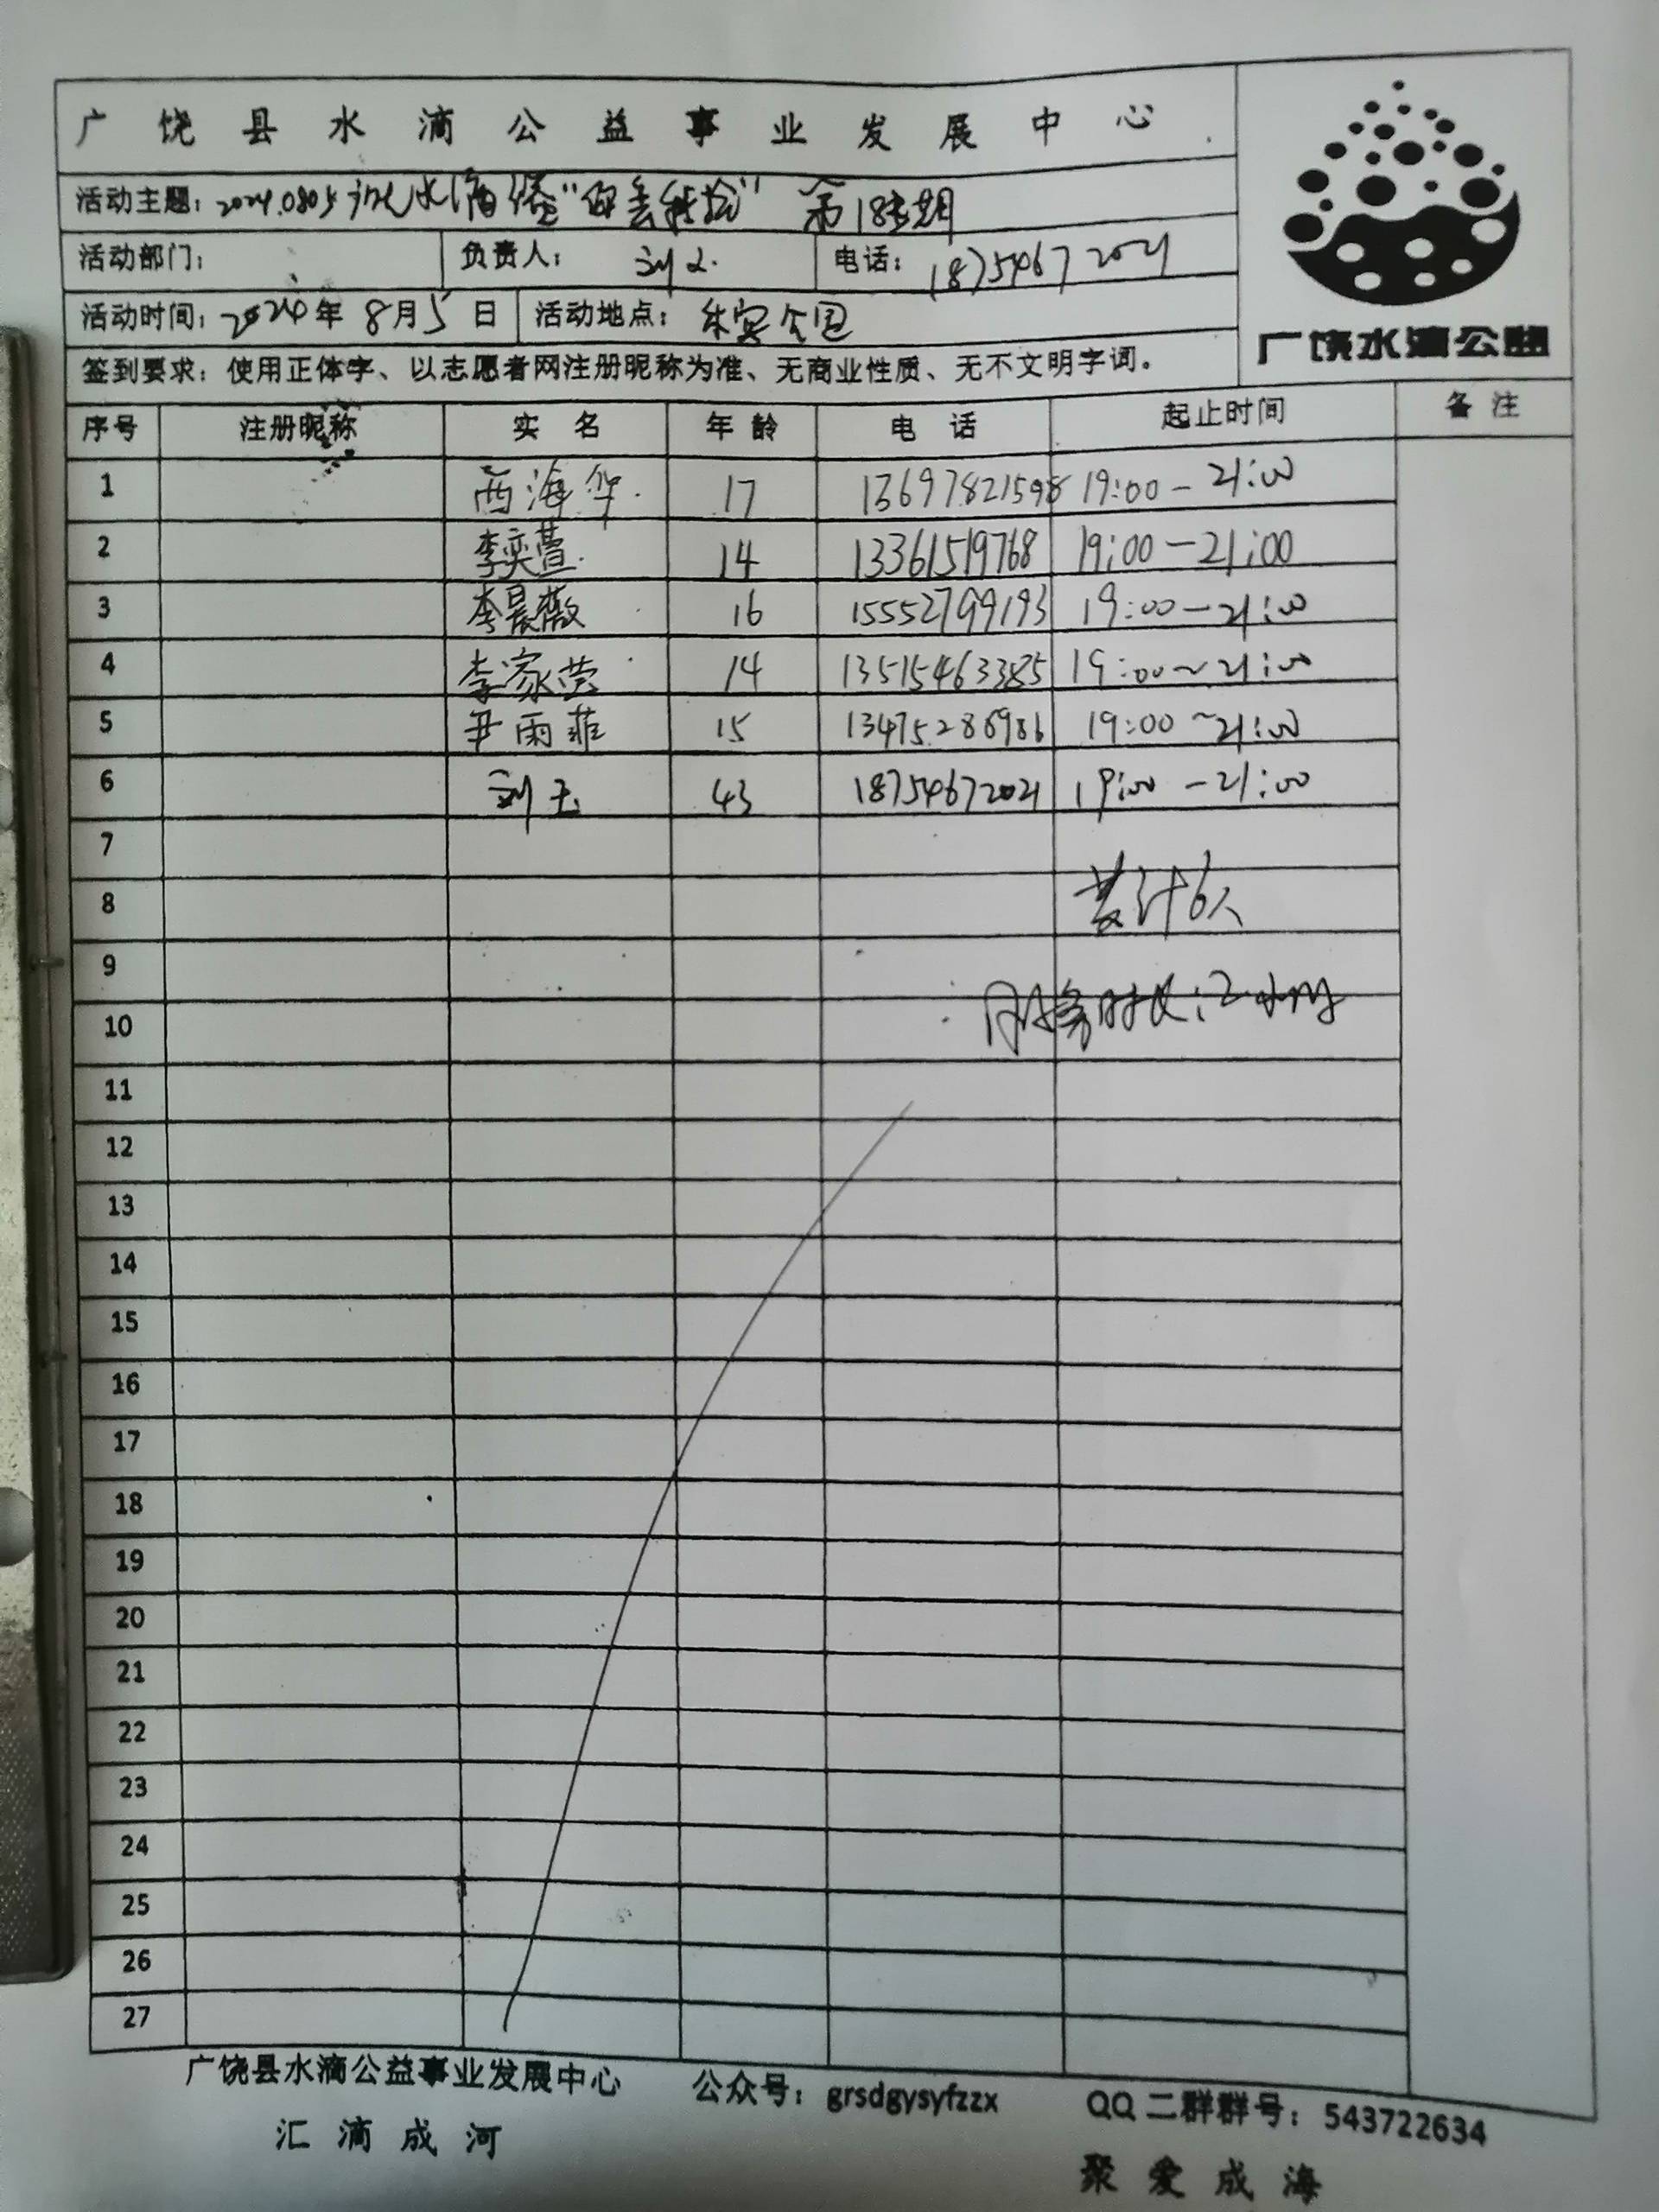 广饶县水滴公益事业发展中心
活动主题：2024.0805 水滴 第183期
活动部门： 负责人：刘玉 电话：18754672021
活动时间：2024年8月5日 活动地点：乐安公园
签到要求：使用正体字、以志愿者网注册昵称为准、无商业性质、无不文明字词。
广饶水滴公益
序号 注册昵称 实名 年龄 电话 起止时间 备注
1 西海华 17 13697821598 19:00-21:00
2 李奕萱 14 13361519768 19:00-21:00
3 李晨薇 16 15552799193 19:00-21:00
4 李家荧 14 13515463385 19:00~21:00
5 尹雨菲 15 13475286986 19:00~21:00
6 刘玉 43 18754672021 19:00-21:00
7
8 共计6人
9
10 服务时长:2小时
11
12
13
14
15
16
17
18
19
20
21
22
23
24
25
26
27
广饶县水滴公益事业发展中心 公众号：grsdgysyfzzx QQ二群群号：543722634
汇滴成河
聚爱成海